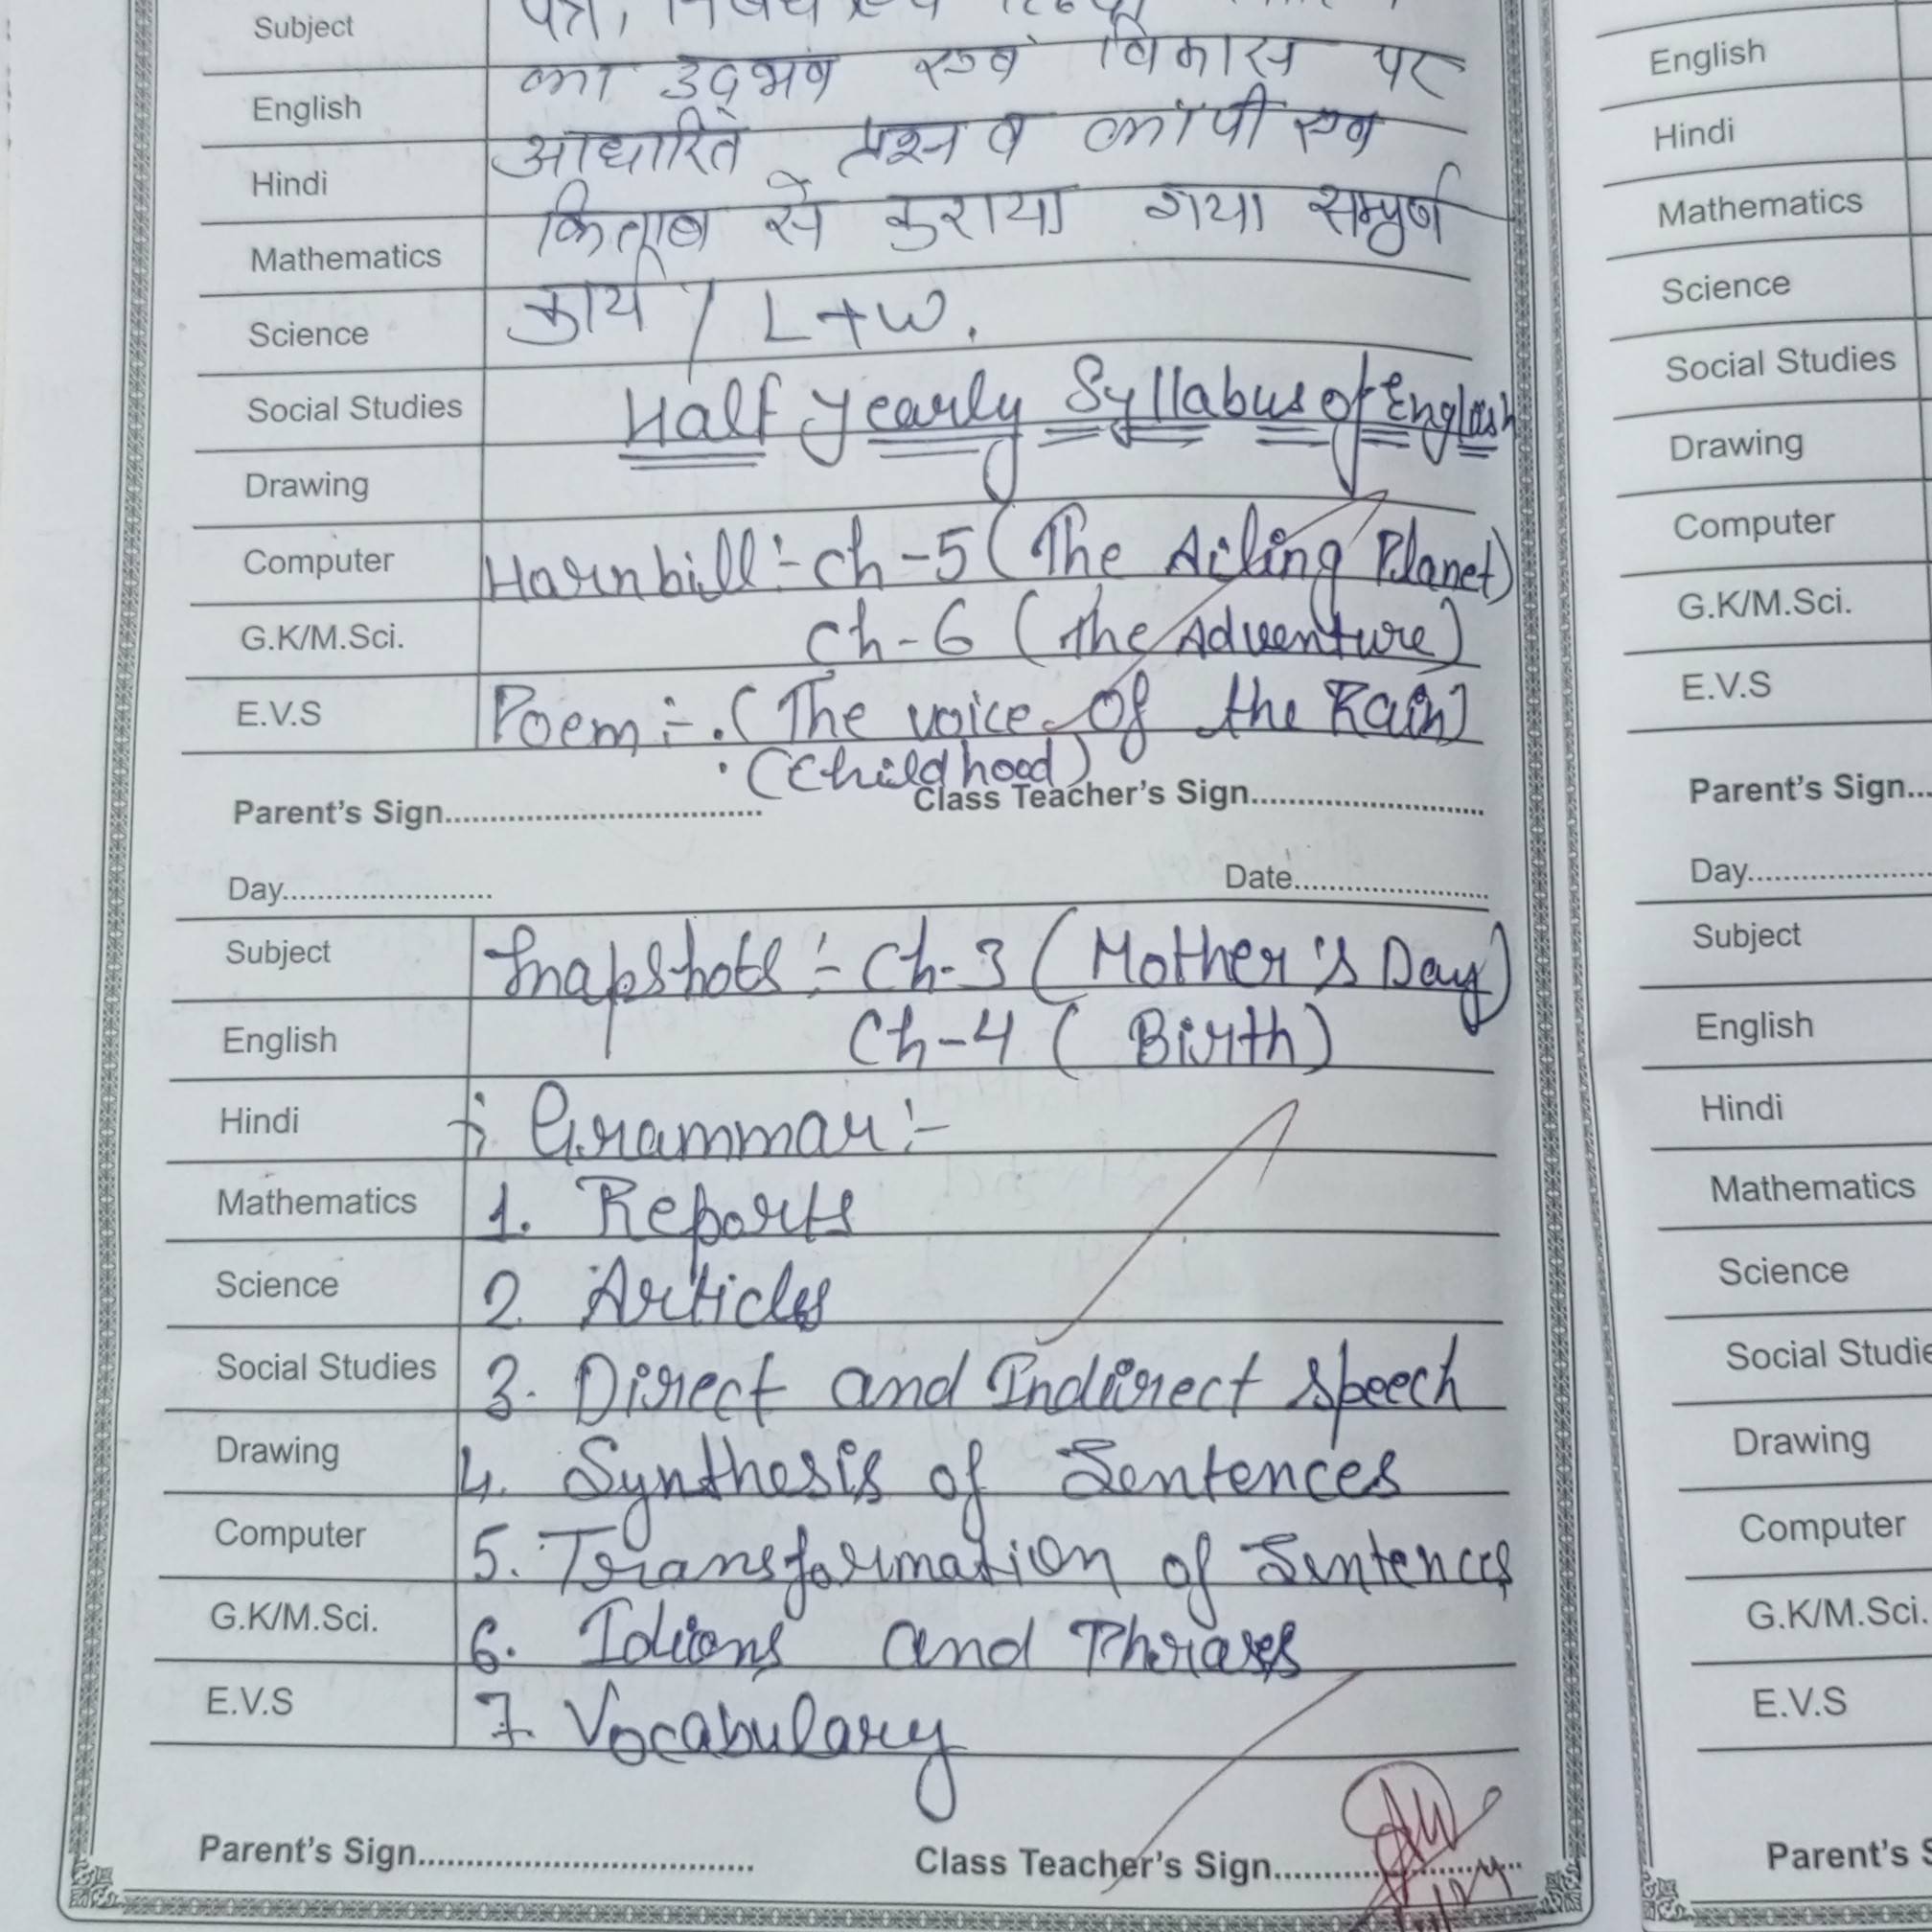 Subject
का उद्भव एवं विकास पर
English
आधारित प्रश्न व कॉपी एवं
Hindi
किताब से कराया गया सम्पूर्ण
Mathematics
कार्य / L+W.
Science
Social Studies Half yearly Syllabus of English
Drawing
Computer Hornbill :- Ch-5 (The Ailing Planet)
G.K/M.Sci. Ch-6 (The Adventure)
E.V.S Poem :- . (The voice of the Rain)
. (Childhood)
Parent's Sign.............. Class Teacher's Sign..............
Day.............. Date..............
Subject Snapshots :- Ch-3 (Mother's Day)
English Ch-4 (Birth)
Hindi Grammar :-
Mathematics 1. Reports
Science 2. Articles
Social Studies 3. Direct and Indirect speech
Drawing 4. Synthesis of Sentences
Computer 5. Transformation of Sentences
G.K/M.Sci. 6. Idioms and Phrases
E.V.S 7. Vocabulary
Parent's Sign.............. Class Teacher's Sign..............
English
Hindi
Mathematics
Science
Social Studies
Drawing
Computer
G.K/M.Sci.
E.V.S
Parent's Sign...
Day..............
Subject
English
Hindi
Mathematics
Science
Social Studie
Drawing
Computer
G.K/M.Sci.
E.V.S
Parent's S